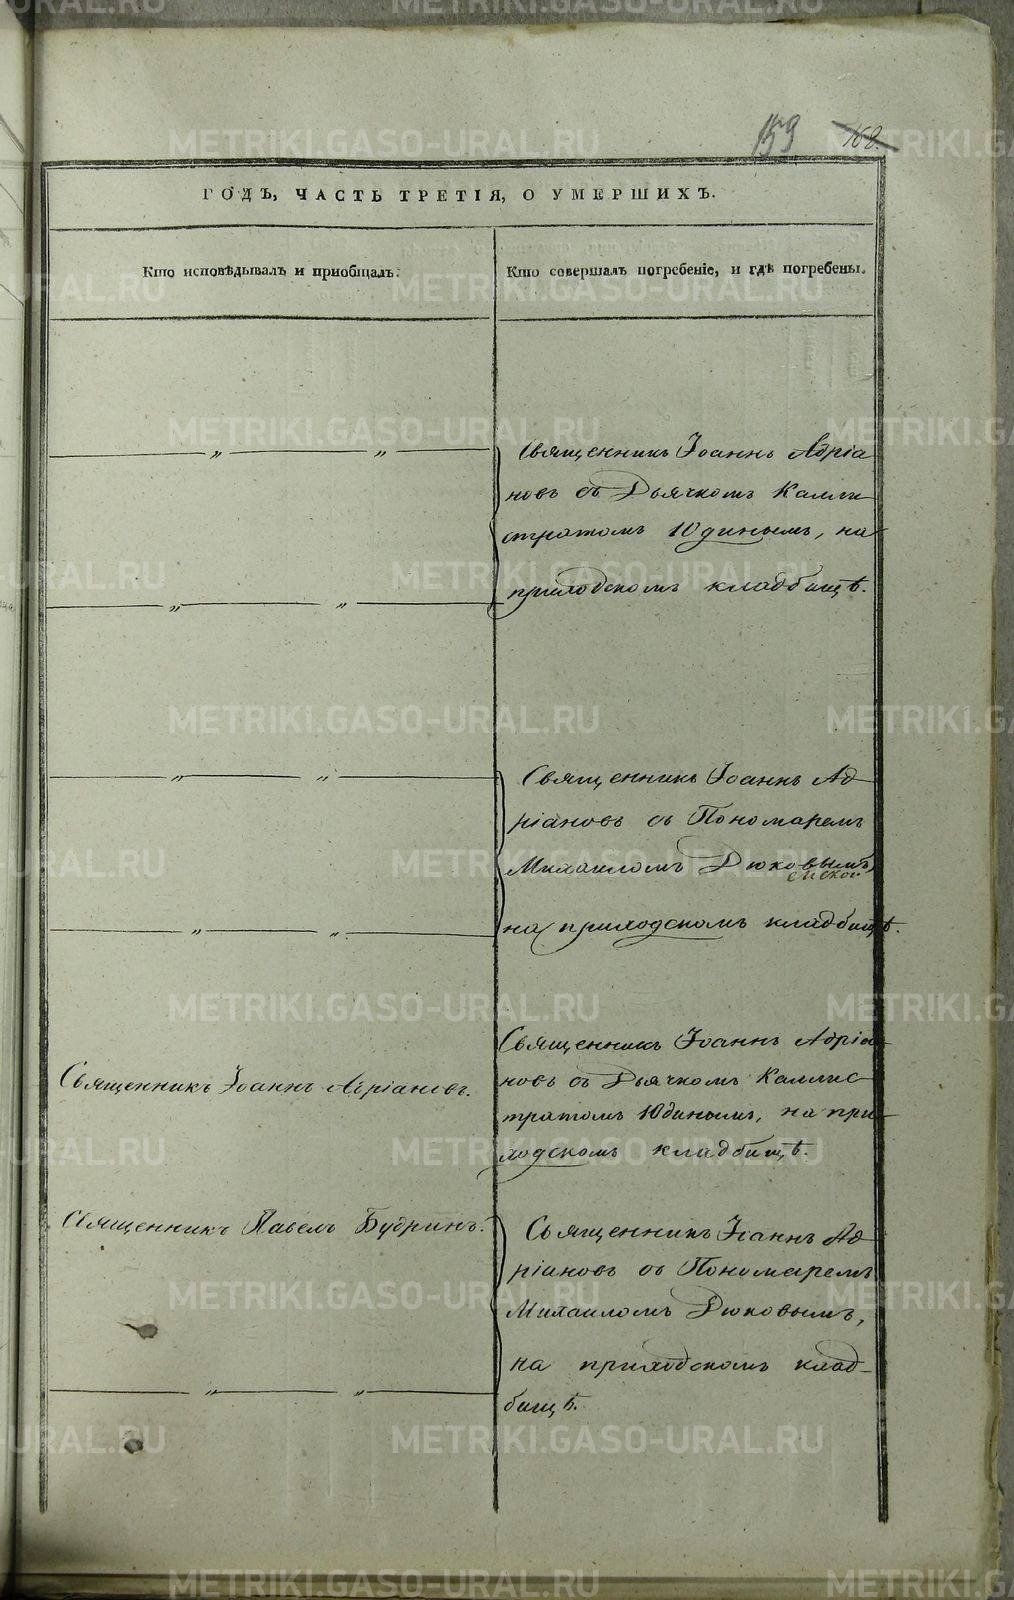 159 168.
ГОДЪ, ЧАСТЬ ТРЕТІЯ, О УМЕРШИХЪ.
Кто исповѣдывалъ и приобщалъ.
Кто совершалъ погребеніе, и гдѣ погребены.
Священникъ Іоаннъ Адріа
новъ съ Дьячкомъ Калли
стратомъ Юдинымъ, на
приходскомъ кладбищѣ.
Священникъ Іоаннъ Ад
ріановъ съ Пономаремъ
Михаиломъ Дюковымъ
на приходскомъ кладбищѣ.
Священникъ Іоаннъ Адріановъ.
Священникъ Іоаннъ Адріа
новъ съ Дьячкомъ Каллис
тратомъ Юдинымъ, на при
ходскомъ кладбищѣ.
Священникъ Павелъ Будринъ.
Священникъ Іоаннъ Ад
ріановъ съ Пономаремъ
Михаиломъ Дюковымъ,
на приходскомъ клад-
бищѣ.
METRIKI.GASO-URAL.RU